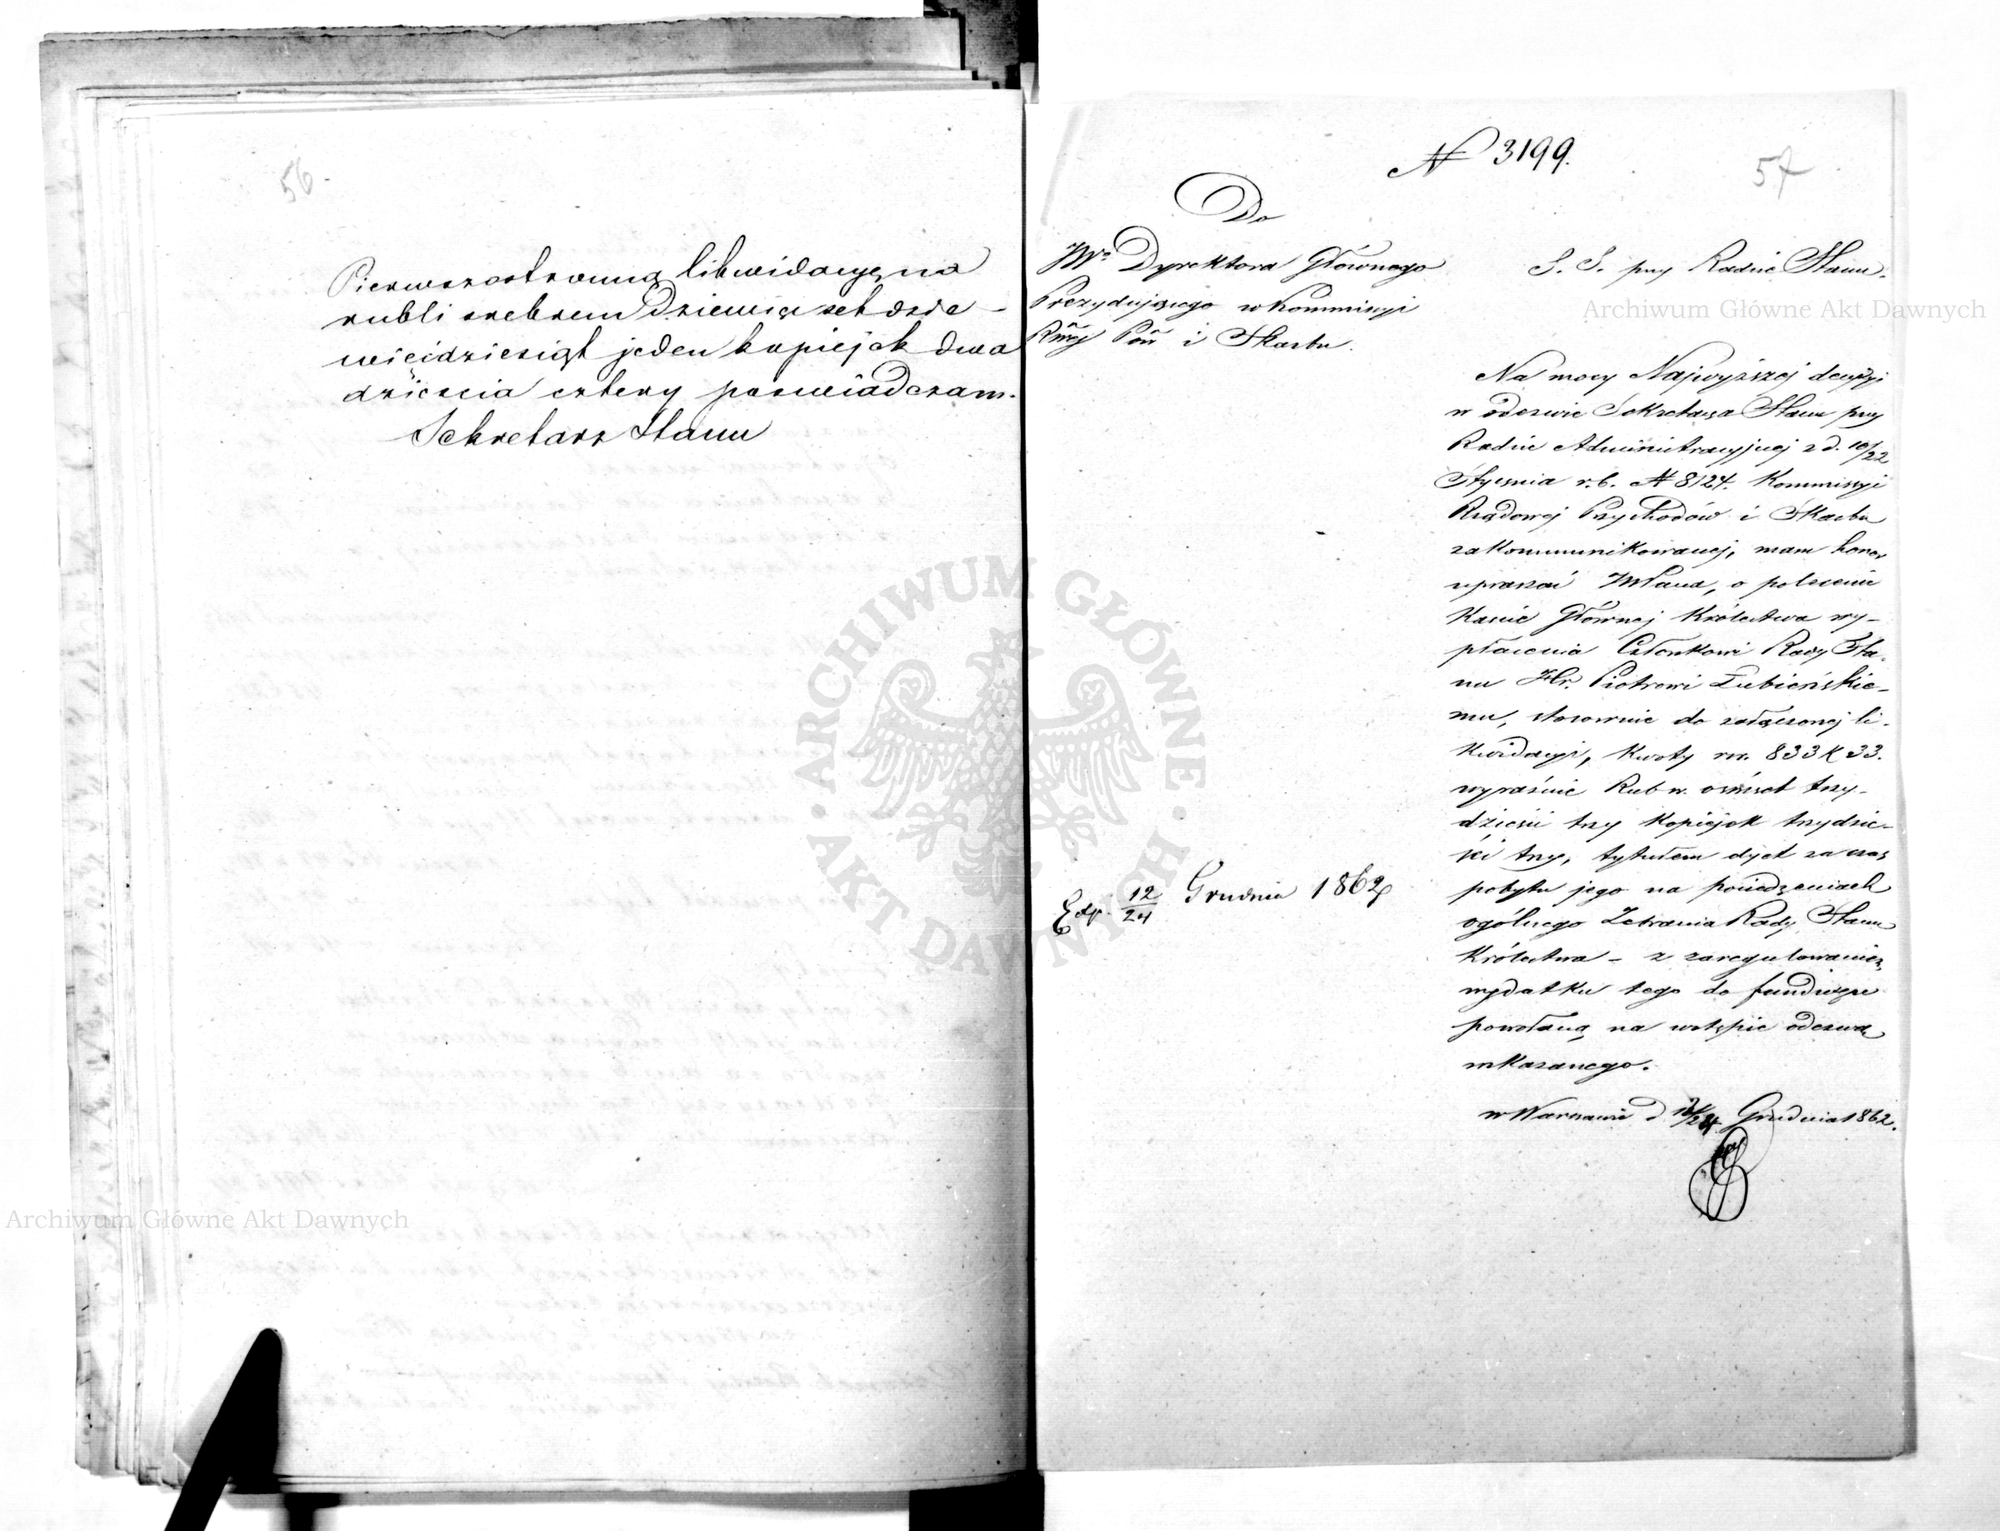 56
Pierwszostronną likwidacyę na
rubli srebrem Dziewięćset dzie-
więćdziesiąt jeden kopiejek dwa
dzieścia cztery poswiadczam.
Sekretarz Stanu
№ 3199.
57
Do
JWo Dyrektora Głównego
Prezydującego w Kommissyi
Rząj Pów i Skarbu.
S. S. przy Radzie Stanu.
Na mocy Najwyższej decyzyi
w odezwie Sekretarza Stanu przy
Radzie Administracyjnej z d. 10/22
Stycznia r. b. № 8124. Kommissyi
Rządowej Przychodów i Skarbu
zakommunikowanej, mam honor
upraszać JWPana, o polecenie
Kassie Głównej Królestwa wy-
płacenia Członkowi Rady Sta-
nu Hr. Piotrowi Łubieńskie-
mu, stosownie do załączonej li-
kwidacyi, kwoty rsr. 833 K 33.
wyraźnie Rub sr. ośmset trzy-
dzieści trzy kopiejek trzydzie-
ści trzy, tytułem dyet za czas
pobytu jego na posiedzeniach
ogólnego Zebrania Rady Stanu
Królestwa - z zaregulowaniem
wydatku tego do funduszu
powołaną na wstępie odezwą
wskazanego.
w Warszawie d 12/24 Grudnia 1862.
Exp. 12/24 Grudnia 1862
Archiwum Główne Akt Dawnych
Archiwum Główne Akt Dawnych
ARCHIWUM GŁÓWNE · AKT DAWNYCH ·